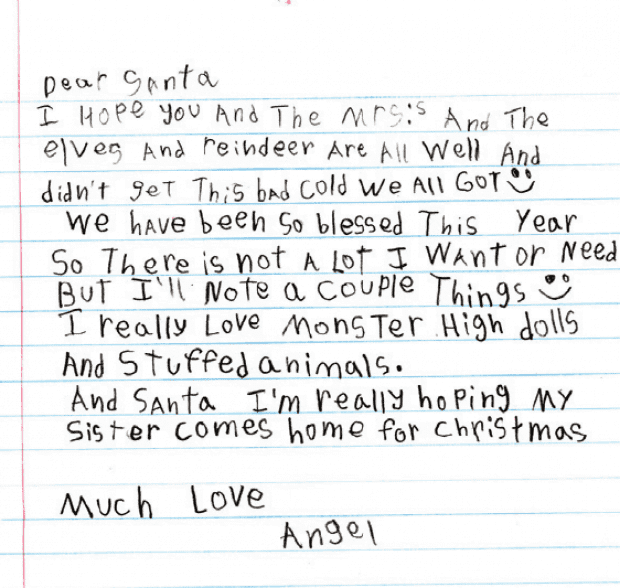 Dear Santa
I Hope you And The Mrs:s And The
elves And reindeer Are All Well And
didn't get This bad Cold We All GoT
We hAve been So blessed This Year
So There is not A LoT I WAnt or Need
BuT I'll Note a couple Things
I really Love MonsTer High dolls
And Stuffed animals.
And SAnta I'm really hoping My
Sister comes home for christmas
Much Love
Angel